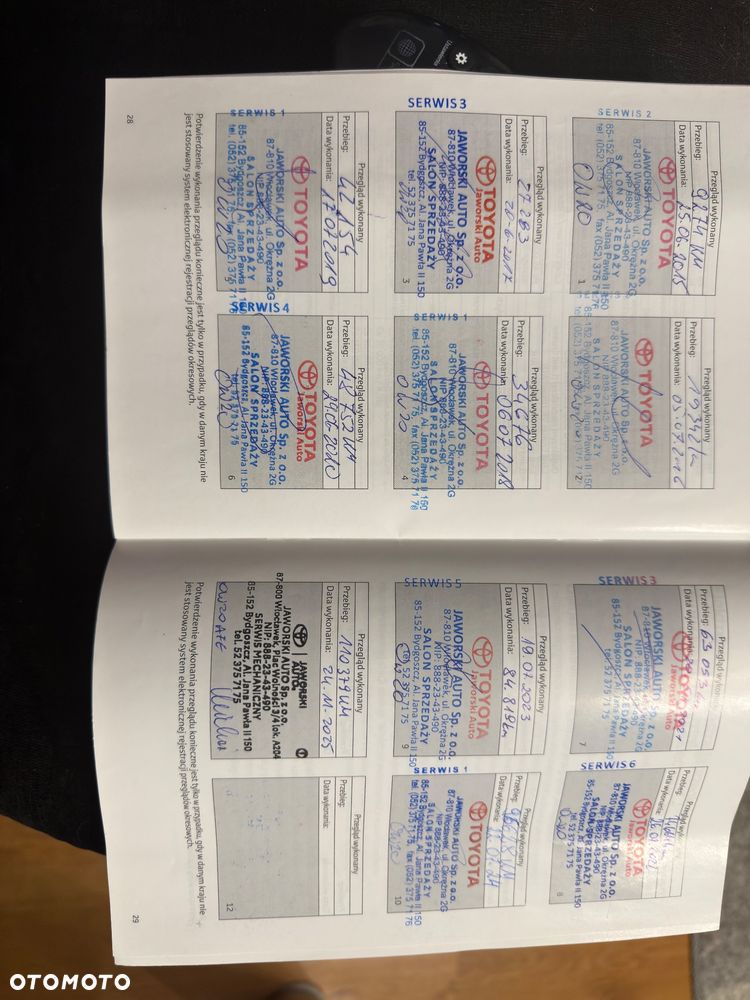 Przegląd wykonany
Przebieg: 9274 km
Data wykonania: 25.06.2015
SERWIS 2
TOYOTA
JAWORSKI AUTO Sp. z o.o.
87-810 Włocławek, ul. Okrężna 2G
NIP: 888-23-43-490
SALON SPRZEDAŻY
85-152 Bydgoszcz, Al. Jana Pawła II 150
tel. (052) 375 71 75
0W20
1
Przegląd wykonany
Przebieg:
Data wykonania: 05.07.2016
TOYOTA
JAWORSKI AUTO Sp. z o.o.
87-810 Włocławek, ul. Okrężna 2G
SALON SPRZEDAŻY
85-152 Bydgoszcz, Al. Jana Pawła II 150
2
SERWIS 3
Przegląd wykonany
Przebieg: 27 283
Data wykonania: 20.6.2017
TOYOTA
Jaworski Auto
JAWORSKI AUTO Sp. z o.o.
87-810 Włocławek, ul. Okrężna 2G
NIP: 888-23-43-490
SALON SPRZEDAŻY
85-152 Bydgoszcz, Al. Jana Pawła II 150
tel. 52 375 71 75
3
Przegląd wykonany
Przebieg: 34676
Data wykonania: 06.07.2018
SERWIS 1
TOYOTA
JAWORSKI AUTO Sp. z o.o.
87-810 Włocławek, ul. Okrężna 2G
NIP: 888-23-43-490
SALON SPRZEDAŻY
85-152 Bydgoszcz, Al. Jana Pawła II 150
tel. (052) 375 71 75, fax (052) 375 71 76
0W20
4
SERWIS 1
Przegląd wykonany
Przebieg: 42 154
Data wykonania: 17.07.2019
TOYOTA
JAWORSKI AUTO Sp. z o.o.
87-810 Włocławek, ul. Okrężna 2G
NIP 888-23-43-490
SALON SPRZEDAŻY
85-152 Bydgoszcz, Al. Jana Pawła II 150
tel. (052) 375 71 75, fax (052) 375 71 76
0W20
Przegląd wykonany
Przebieg: 48 752 km
Data wykonania:
SERWIS 4
TOYOTA
Jaworski Auto
JAWORSKI AUTO Sp. z o.o.
87-810 Włocławek, ul. Okrężna 2G
NIP: 888-23-43-490
SALON SPRZEDAŻY
85-152 Bydgoszcz, Al. Jana Pawła II 150
tel. 52 375 71 75
0W20
6
Potwierdzenie wykonania przeglądu konieczne jest tylko w przypadku, gdy w danym kraju nie
jest stosowany system elektronicznej rejestracji przeglądów okresowych.
28
Przegląd wykonany
Przebieg: 63 053
Data wykonania:
SERWIS 3
TOYOTA
JAWORSKI AUTO Sp. z o.o.
87-810 Włocławek, ul. Okrężna 2G
NIP: 888-23-43-490
SALON SPRZEDAŻY
85-152 Bydgoszcz, Al. Jana Pawła II 150
tel. 52 375 71 75
7
Przegląd wykonany
Przebieg:
Data wykonania:
SERWIS 6
TOYOTA
Jaworski Auto
JAWORSKI AUTO Sp. z o.o.
87-810 Włocławek, ul. Okrężna 2G
NIP: 888-23-43-490
SALON SPRZEDAŻY
85-152 Bydgoszcz, Al. Jana Pawła II 150
tel. 52 375 71 75
8
Przegląd wykonany
Przebieg: 19.07.2023
Data wykonania: 84.819km
SERWIS 5
TOYOTA
Jaworski Auto
JAWORSKI AUTO Sp. z o.o.
87-810 Włocławek, ul. Okrężna 2G
NIP: 888-23-43-490
SALON SPRZEDAŻY
85-152 Bydgoszcz, Al. Jana Pawła II 150
tel. 52 375 71 75
9
Przegląd wykonany
Przebieg:
Data wykonania:
SERWIS 1
TOYOTA
JAWORSKI AUTO Sp. z o.o.
87-810 Włocławek, ul. Okrężna 2G
NIP: 888-23-43-490
SALON SPRZEDAŻY
85-152 Bydgoszcz, Al. Jana Pawła II 150
tel. (052) 375 71 75, fax (052) 375 71 76
0W20
10
Przegląd wykonany
Przebieg: 110 379 km
Data wykonania: 24.11.2025
JAWORSKI
AUTO
JAWORSKI AUTO Sp. z o.o.
87-800 Włocławek, Plac Wolności 3/4 lok. A204
NIP: 888-23-43-490
SERWIS MECHANICZNY
85-152 Bydgoszcz, Al. Jana Pawła II 150
tel. 52 375 71 75
Przegląd wykonany
Przebieg:
Data wykonania:
12
Potwierdzenie wykonania przeglądu konieczne jest tylko w przypadku, gdy w danym kraju nie
jest stosowany system elektronicznej rejestracji przeglądów okresowych.
29
OTOMOTO